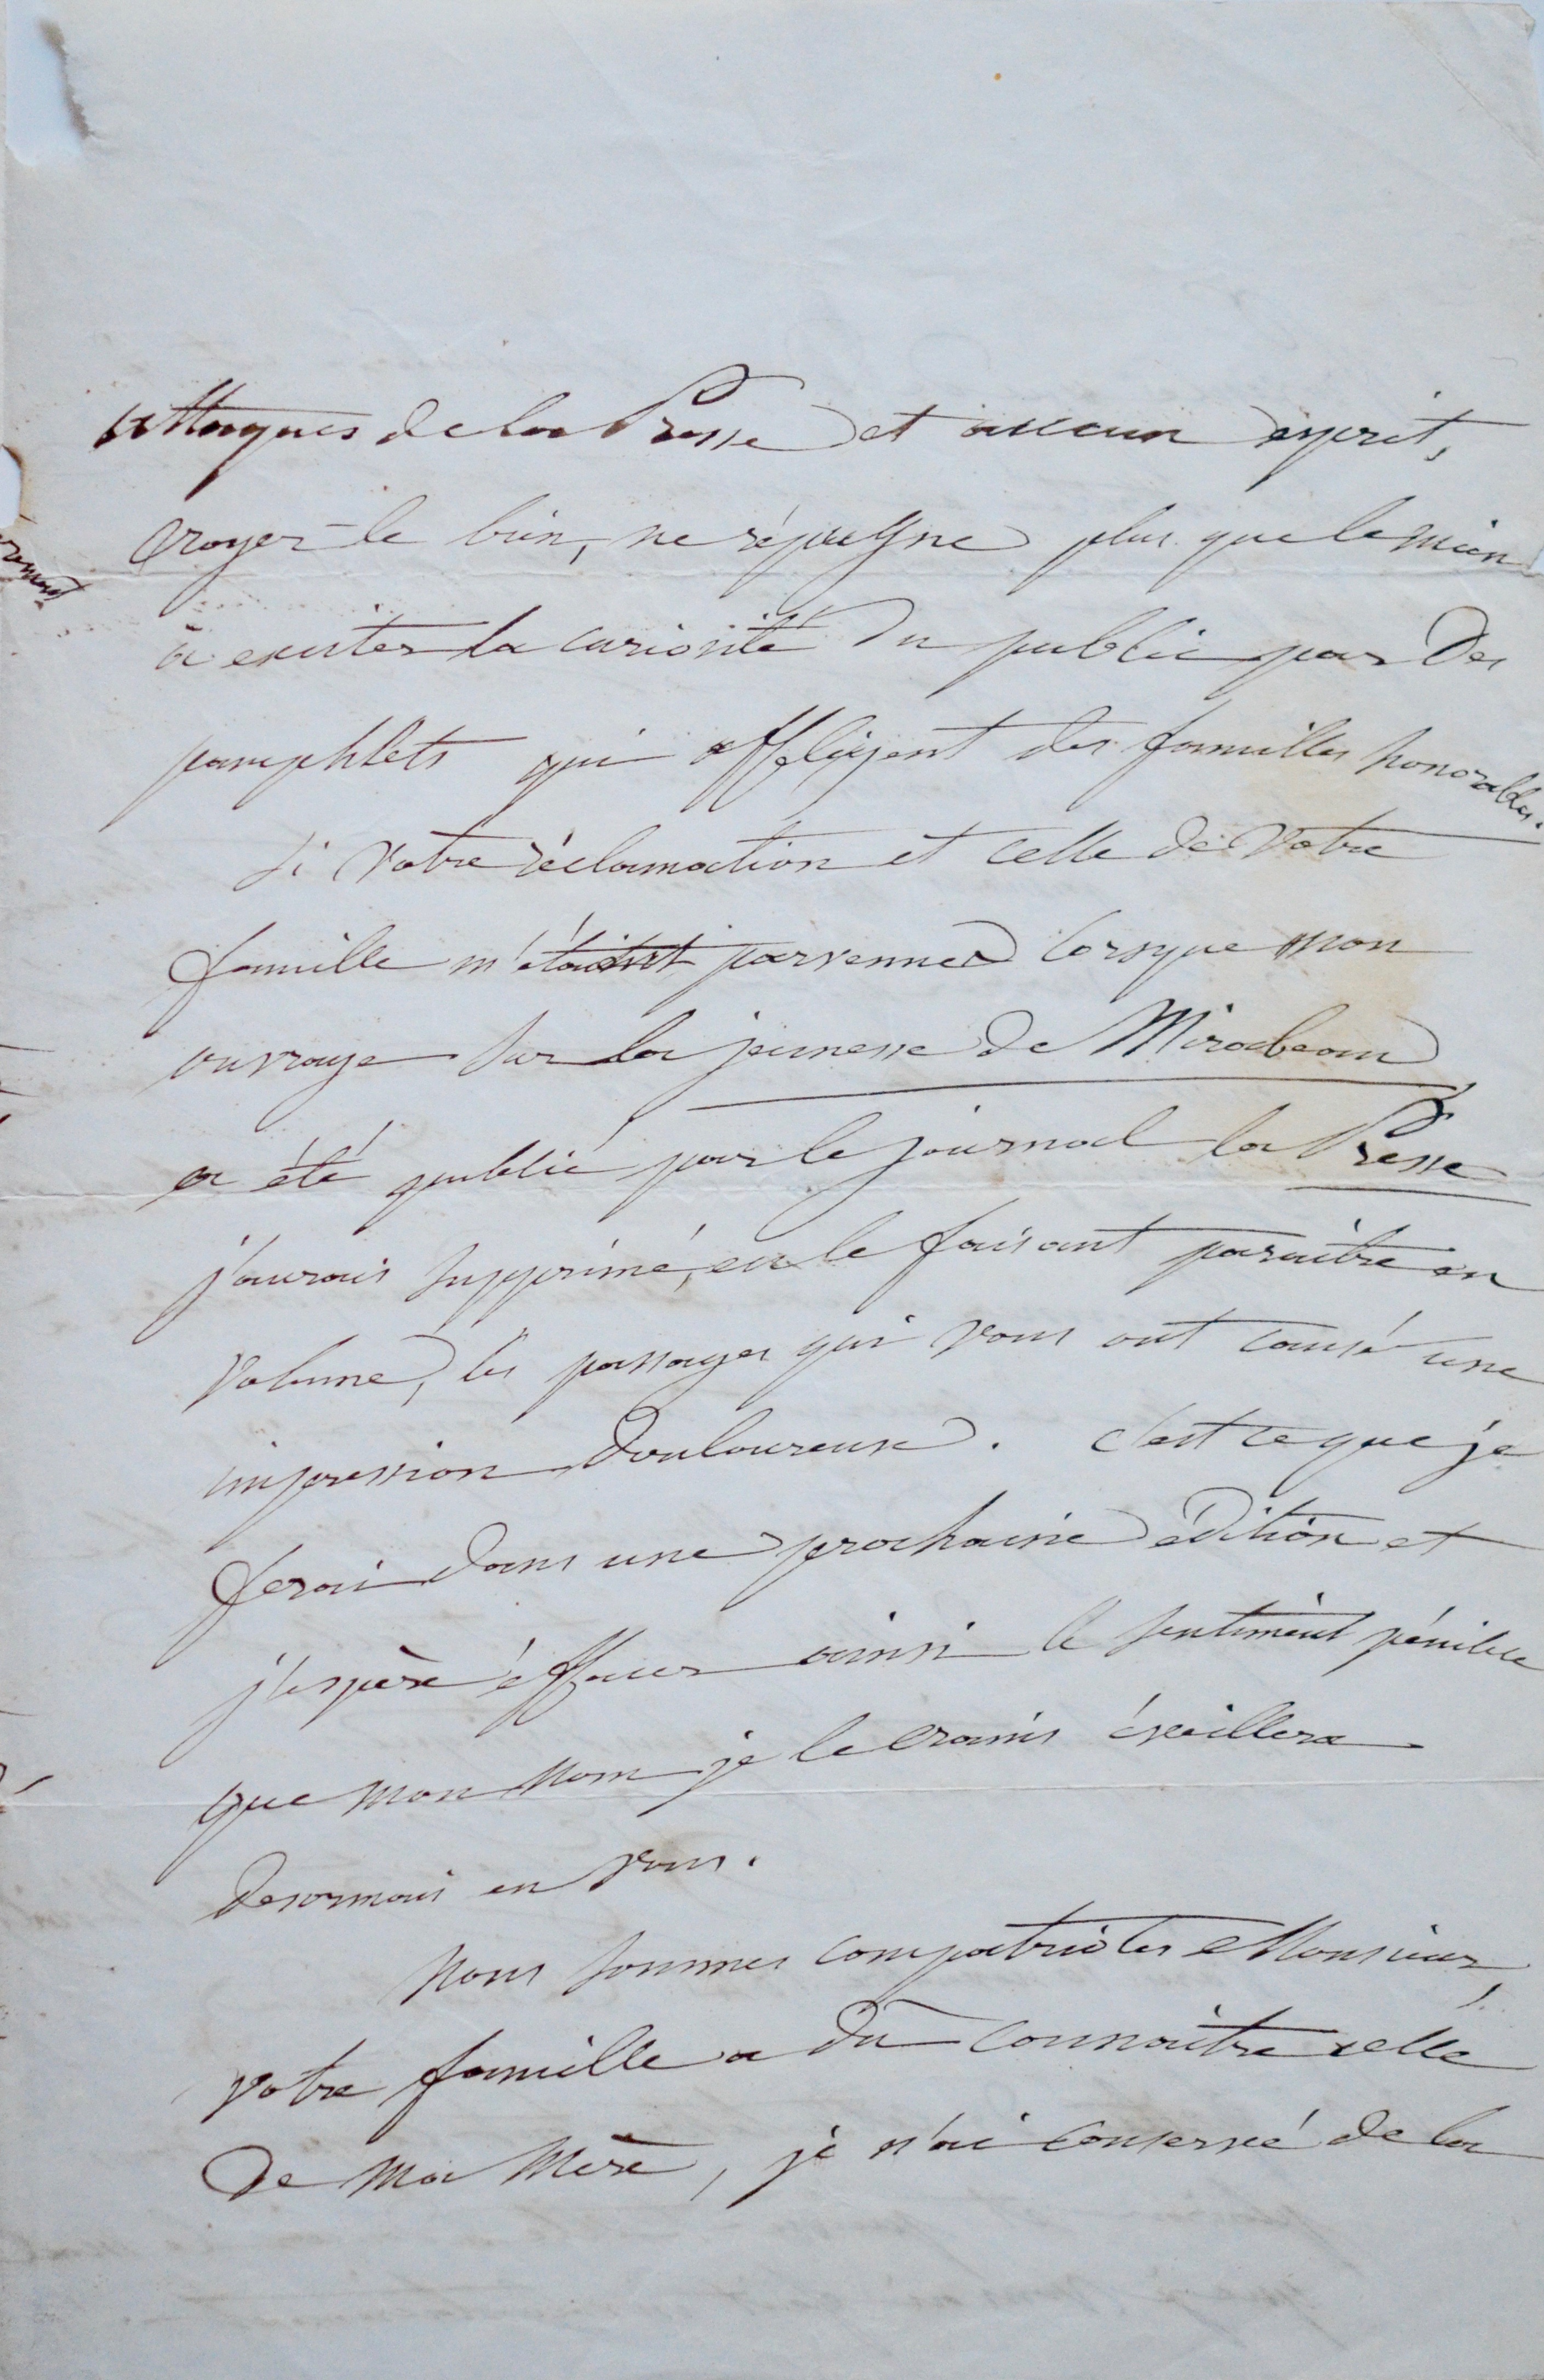 attaques de la Presse et aucun esprit,
croyez-le bien, ne répugne plus que le mien
à exciter la curiosité du public par des
pamphlets qui affligent des familles honorables.
Si votre réclamation et celle de votre
famille m'étaient parvenues lorsque mon
ouvrage sur la jeunesse de Mirabeau
a été publié par le journal la Presse
j'aurais supprimé, en le faisant paraître en
volume, les passages qui vous ont causé une
impression douloureuse. c'est ce que je
ferai dans une prochaine édition et
j'espère éffacer ainsi le sentiment pénible
que mon nom je le crains éveillera
desormais en vous.
nous sommes compatriotes Monsieur,
votre famille a dû connaître celle
de ma Mère, je n'ai conservé de la